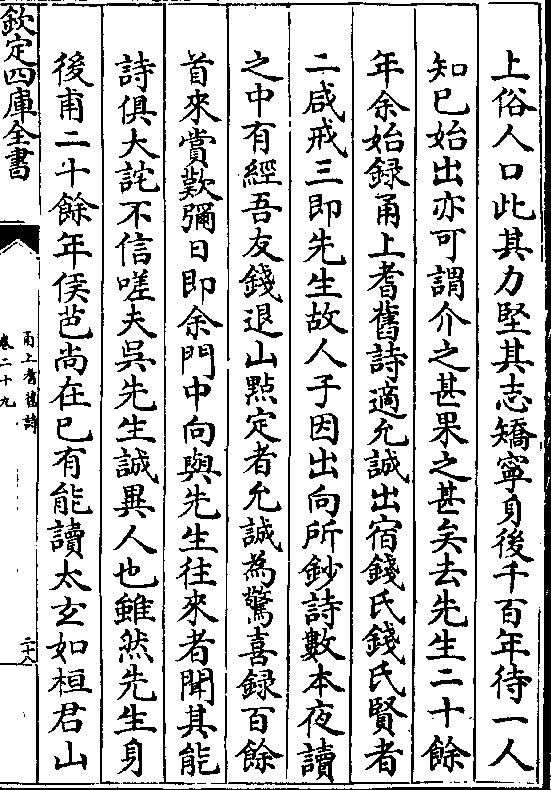 上俗人口此其力堅其志矯寧身後千百年待一人
知已始出亦可謂介之甚果之甚矣去先生二十餘
年余始録甬上耆舊詩適允誠出宿錢氏錢氏賢者
二咸戒三即先生故人子因出向所鈔詩數本夜讀
之中有經吾友錢退山㸃定者允誠為驚喜録百餘
首來賞歎彌日即余門中向與先生往來者聞其能
詩俱大詫不信嗟夫吳先生誠異人也雖然先生身
後甫二十餘年侯芭尚在已有能讀太玄如桓君山
欽定四庫全書
甬上耆舊詩
卷二十九
二十八